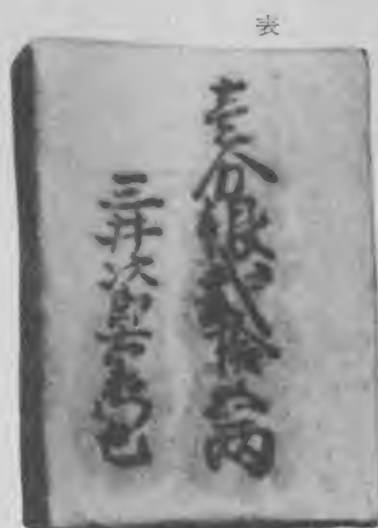 表
壱分銀弐拾五両
三井次郎右衛門包